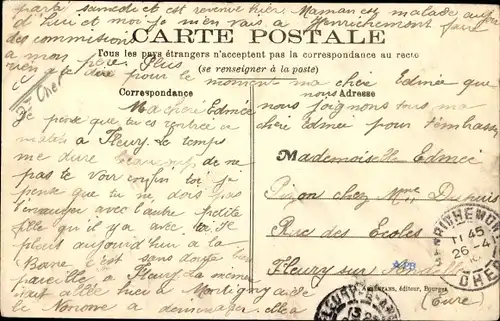 partie samedi et est revenue hier. Maman est malade aujour
d'hui et moi je m'en vais à Henrichemont faire
des commissions
à mon père. Plus
rien à te dire pour le moment ma chère Edmée que
nous joignons tous ma
chère Edmée pour t'embrasser
CARTE POSTALE
Tous les pays étrangers n'acceptent pas la correspondance au recto
(se renseigner à la poste)
Correspondance
Adresse
Cher
Ma chère Edmée
Je pense que tu es rentrée
à Fleury. Le temps
me dure beaucoup de ne
pas te voir enfin toi je
pense que tu ne dois pas
t'ennuyer avec l'autre petite
fille qu'il y a avec toi. Je
pleut aujourd'hui à la
Borne c'est sans doute bien
pareille à Fleury. La mémère
était allée hier à Mortigny aide
le à déménager. Elle a
Mademoiselle Edmée
Pizon chez Mme Dupuis
Rue des Ecoles
Fleury sur Andelle
(Eure)
éditeur, Bourges
HENRICHEMONT
11 45
26 -4
CHER
FLEURY-S-AND